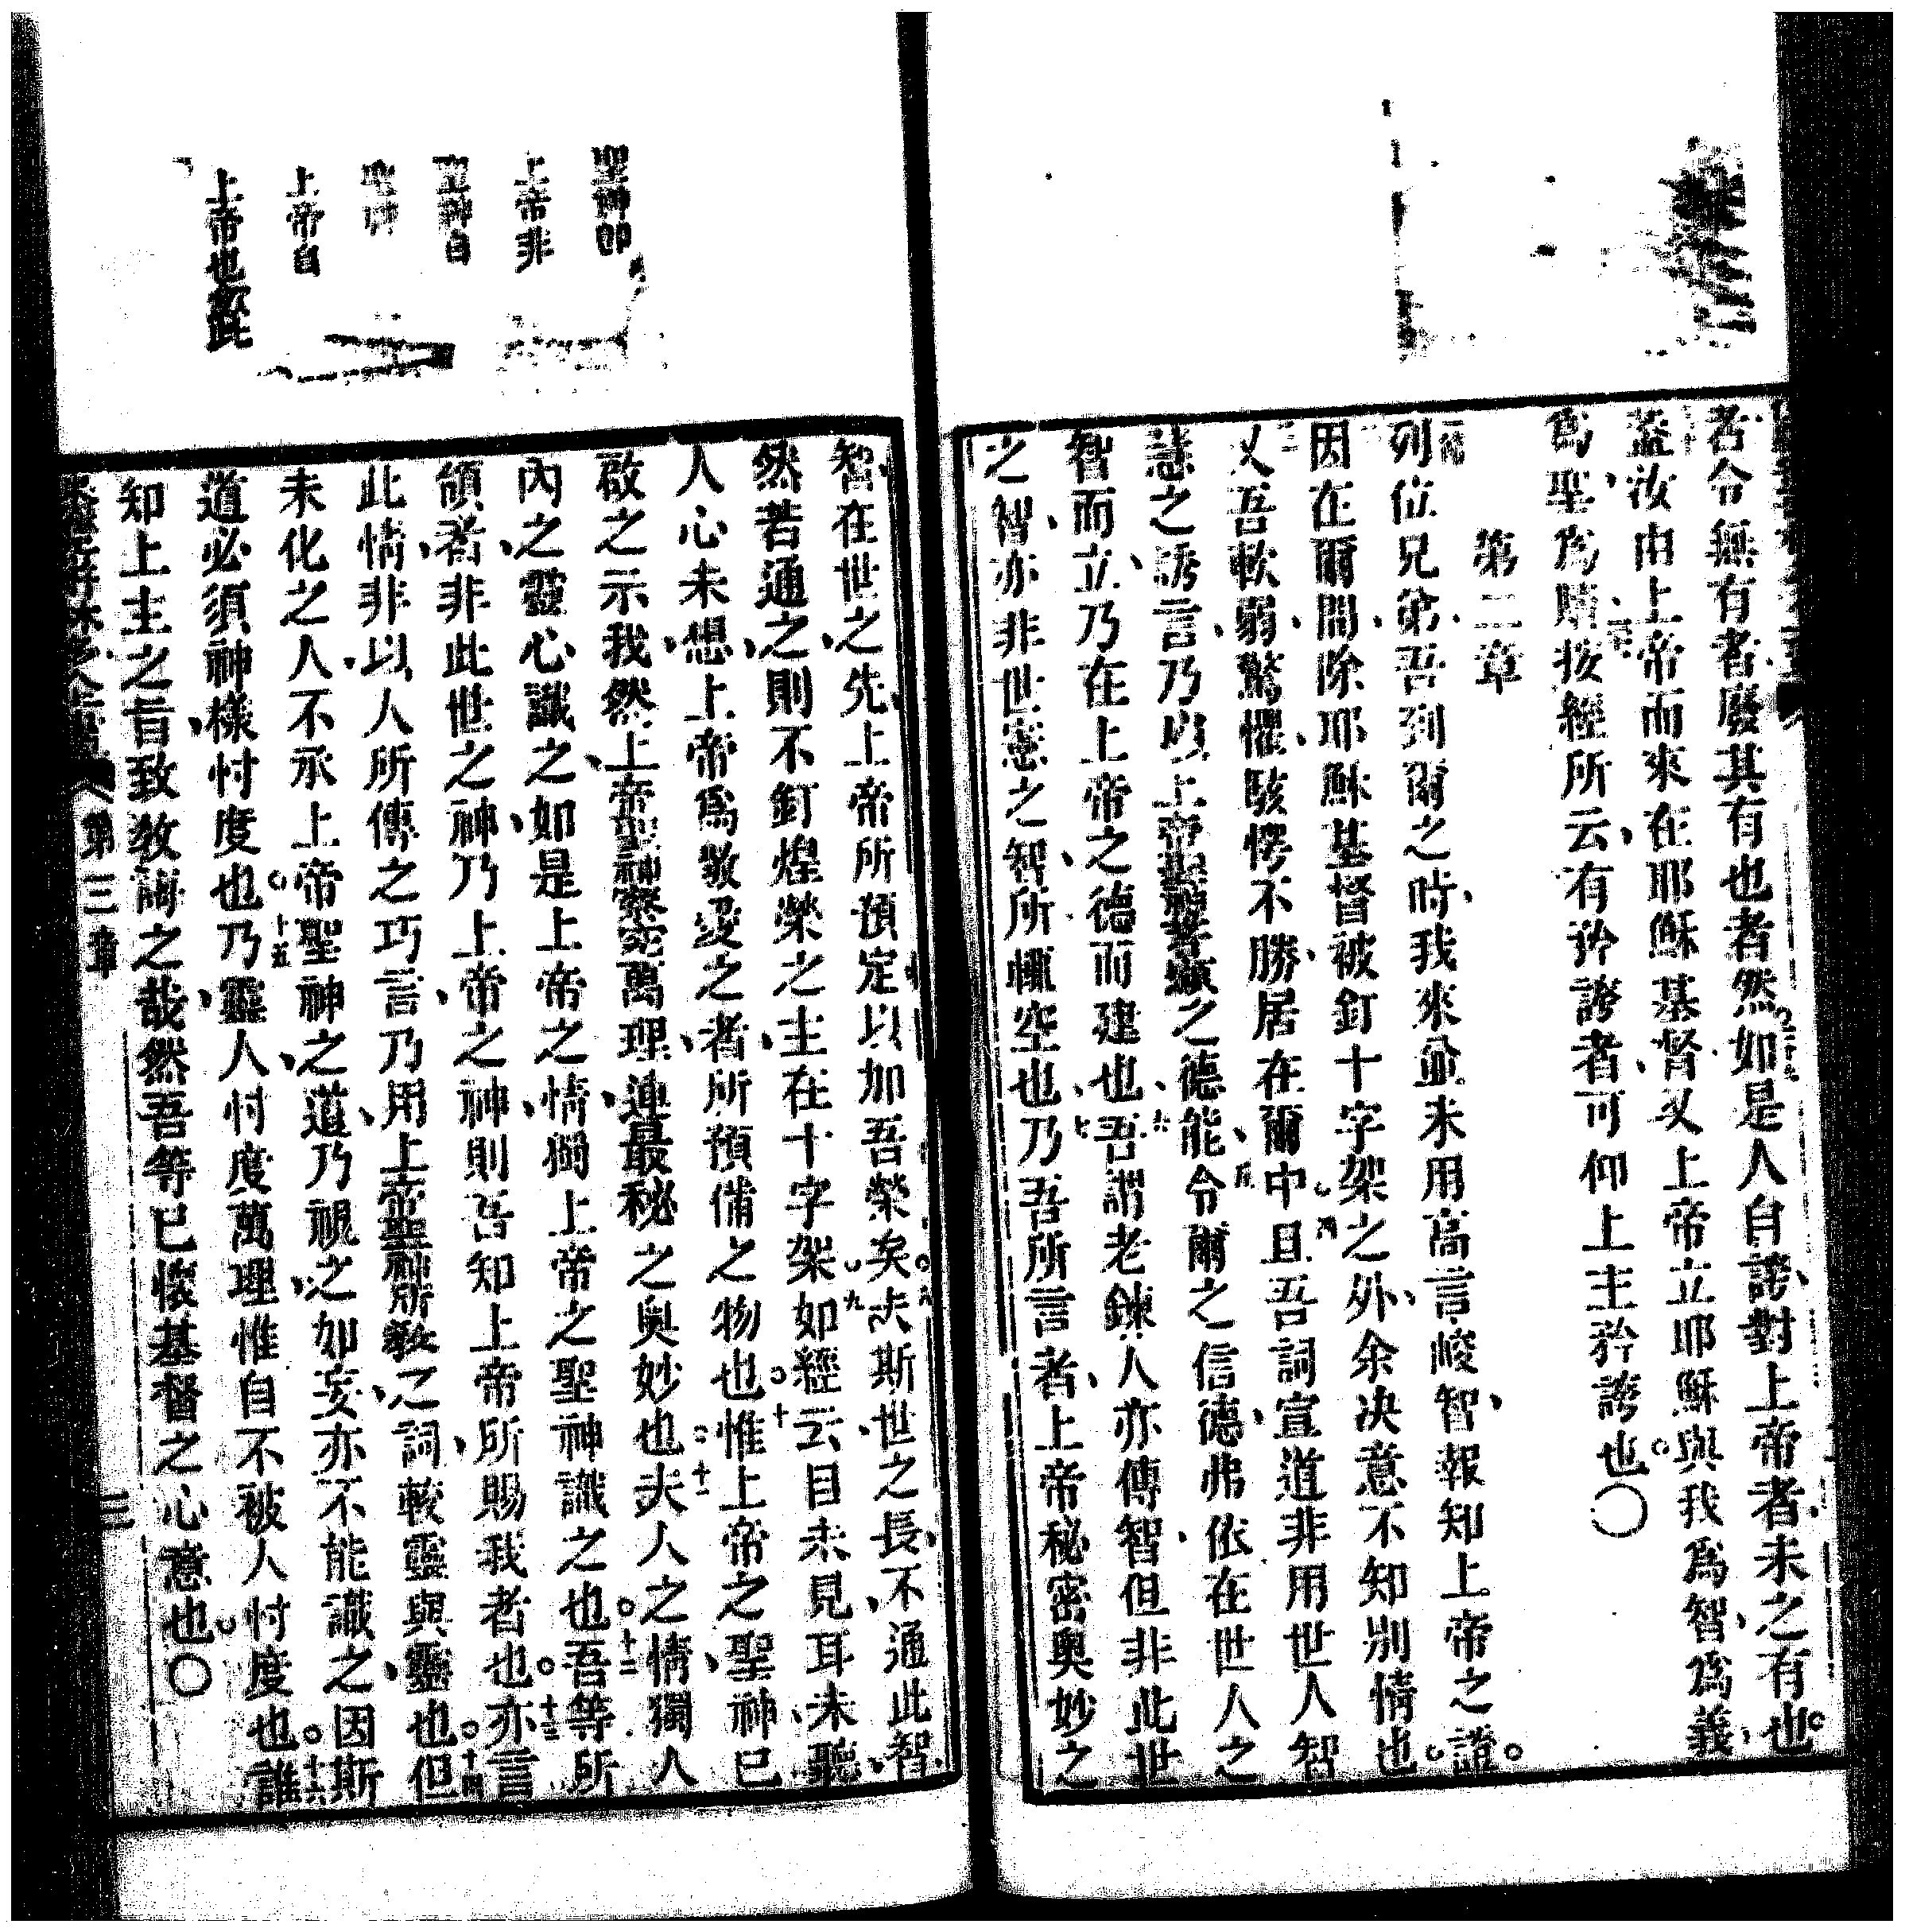 者令無有者廢其有也者然如是人自誇對上帝者未之有也
三十
蓋汝由上帝而來在耶穌基督又上帝立耶穌與我爲智爲義
爲聖爲贖按經所云有矜誇者可仰上主矜誇也〇
第二章
列位兄弟吾到爾之時我來並未用高言峻智報知上帝之證
因在爾間除耶穌基督被釘十字架之外余决意不知别情也
又吾軟弱驚懼駭愕不勝居在爾中四且吾詞宣道非用世人智
慧之誘言乃以上帝聖神之德能五令爾之信德弗依在世人之
智而立乃在上帝之德而建也六吾謂老鍊人亦傳智但非此世
之智亦非世憲之智所輒空也七乃吾所言者上帝秘密奥妙之
聖神卽
上帝非
聖神自
聖神
上帝自
上帝也
智在世之先上帝所預定以加吾榮矣八夫斯世之長不通此智
然若通之則不釘煌榮之主在十字架九如經云目未見耳未聽
人心未想上帝爲敬愛之者所預備之物也十惟上帝之聖神已
啟之示我然上帝聖神察究萬理連最秘之奥妙也十一夫人之情獨人
內之靈心識之如是上帝之情獨上帝之聖神識之也十二吾等所
領者非此世之神乃上帝之神則吾知上帝所賜我者也十三亦言
此情非以人所傳之巧言乃用上帝聖神所教之詞較靈與靈也十四但
未化之人不承上帝聖神之道乃視之如妄亦不能識之因斯
道必須神樣忖度也十五乃靈人忖度萬理惟自不被人忖度也十六誰
知上主之旨致教誨之哉然吾等已悛基督之心意也〇
第三章
三